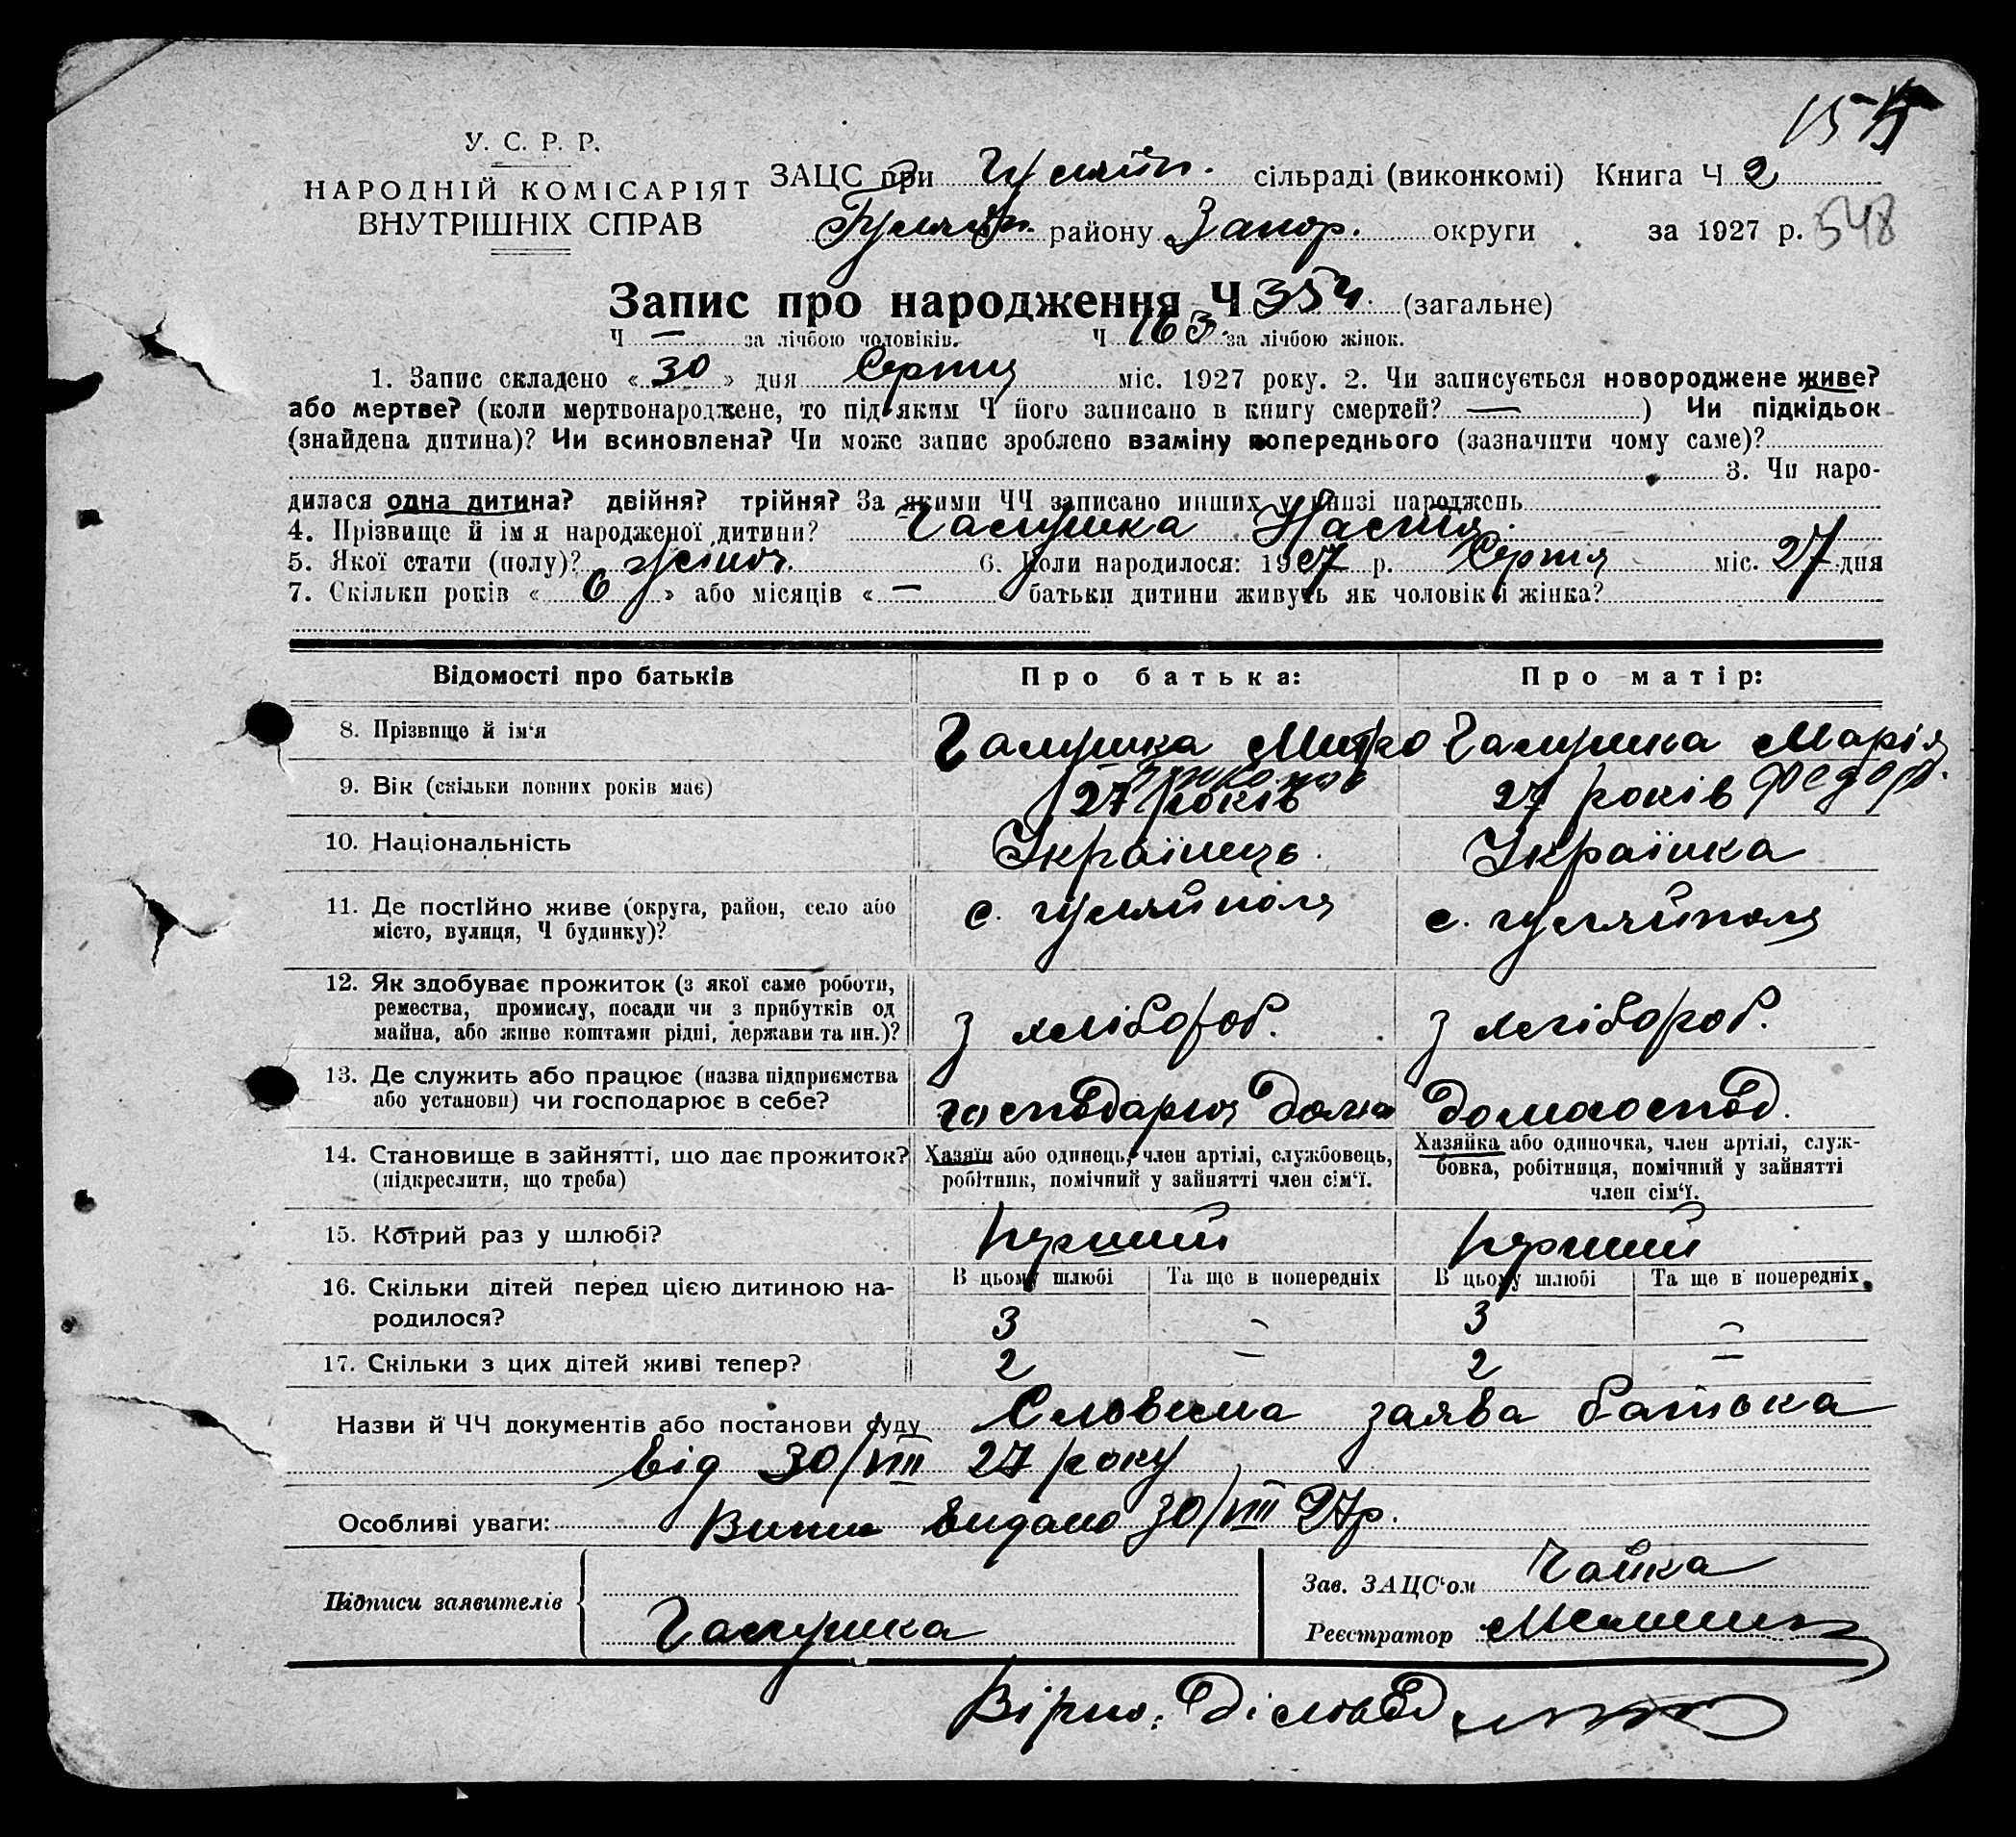 У. С. Р. Р.
НАРОДНІЙ КОМІСАРІЯТ
ВНУТРІШНІХ СПРАВ
ЗАЦС при Гуляйп. сільраді (виконкомі) Книга Ч 2
Гуляйп. району Запор. округи за 1927 р. 548
Запис про народження Ч 354. (загальне)
Ч — за лічбою чоловіків. Ч 163. за лічбою жінок.
1. Запис складено « 30 » дня Серпня міс. 1927 року. 2. Чи записується новороджене живе?
або мертве? (коли мертвонароджене, то під яким Ч його записано в книгу смертей? — ) Чи підкідьок
(знайдена дитина)? Чи всиновлена? Чи може запис зроблено взаміну попереднього (зазначити чому саме)?
3. Чи наро-
дилася одна дитина? двійня? трійня? За якими ЧЧ записано инших у книзі народжень
4. Прізвище й ім'я народженої дитини? Галушка Настя.
5. Якої стати (полу)? жіноч. 6. Коли народилося: 1927 р. Серпня міс. 27 дня
7. Скільки років « 6 » або місяців « — батьки дитини живуть як чоловік і жінка?
Відомості про батьків Про батька: Про матір:
8. Прізвище й ім'я Галушка Митро Галушка Марія
Федор.
9. Вік (скільки повних років має) 27 років 27 років
10. Національність Українець. Українка
11. Де постійно живе (округа, район, село або
місто, вулиця, Ч будинку)? с. гуляйполя с. гуляйполя
12. Як здобуває прожиток (з якої саме роботи,
ремества, промислу, посади чи з прибутків од
майна, або живе коштами рідні, держави та ин.)? З хлібороб. З хлібороб.
13. Де служить або працює (назва підприємства
або установи) чи господарює в себе? господарює дома домогоспод.
14. Становище в зайнятті, що дає прожиток?
(підкреслити, що треба)
Хазяїн або одинець, член артілі, службовець,
робітник, помічний у зайнятті член сім'ї.
Хазяйка або одиночка, член артілі, служ-
бовка, робітниця, помічний у зайнятті
член сім'ї.
15. Котрий раз у шлюбі? перший перший
16. Скільки дітей перед цією дитиною на-
родилося?
В цьому шлюбі Та ще в попередніх В цьому шлюбі Та ще в попередніх
3 – 3 –
17. Скільки з цих дітей живі тепер? 2 – 2 –
Назви й ЧЧ документів або постанови суду Словесна заява батька
від 30/VIII 27 року
Особливі уваги: видано 30/VIII 27р.
Підписи заявителів
Галушка
Зав. ЗАЦС'ом Чайка
Реєстратор
Вірно: Діловод